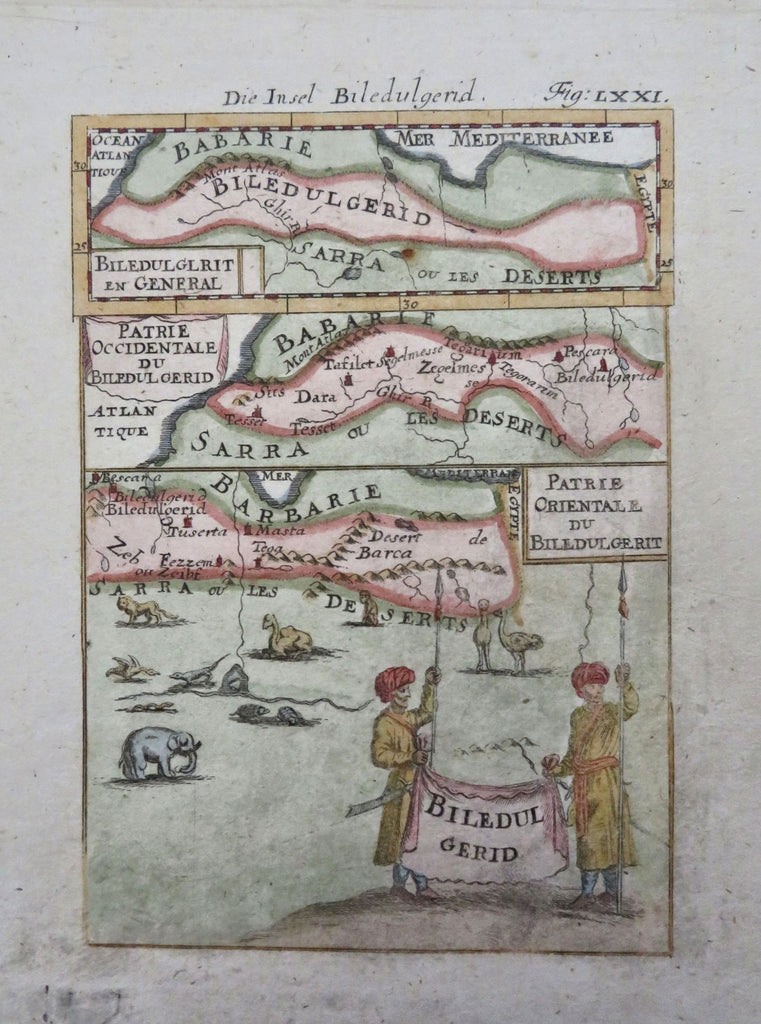 Die Insel Biledulgerid. Fig: LXXI.
OCEAN
ATLAN
TIQUE
BABARIE
MER MEDITERRANEE
30
30
Mont Atlas
BILEDULGERID
Ghir R.
EGIPTE
25
25
SARRA OU LES DESERTS
BILEDULGLRIT
EN GENERAL
30
PATRIE
OCCIDENTALE
DU
BILEDULGERID
BABARIE
Mont Atlas
Tafilet
Segelmesse
Tegorarium
Zegelmes
se
Tegorarin
Pescara
Biledulgerid
ATLAN
TIQUE
Sus
Dara
Tesset
Tesset
Ghir R.
SARRA OU LES DESERTS
Bescara
Biledulgerid
Biledulgerid
MER MEDITERRAN
BARBARIE
EGIPTE
PATRIE
ORIENTALE
DU
BILEDULGERIT
Tuserta
Masta
Teoa
Desert de
Barca
Zeb
ou Zeibe
Fezzem
SARRA OU LES DESERTS
BILEDUL
GERID